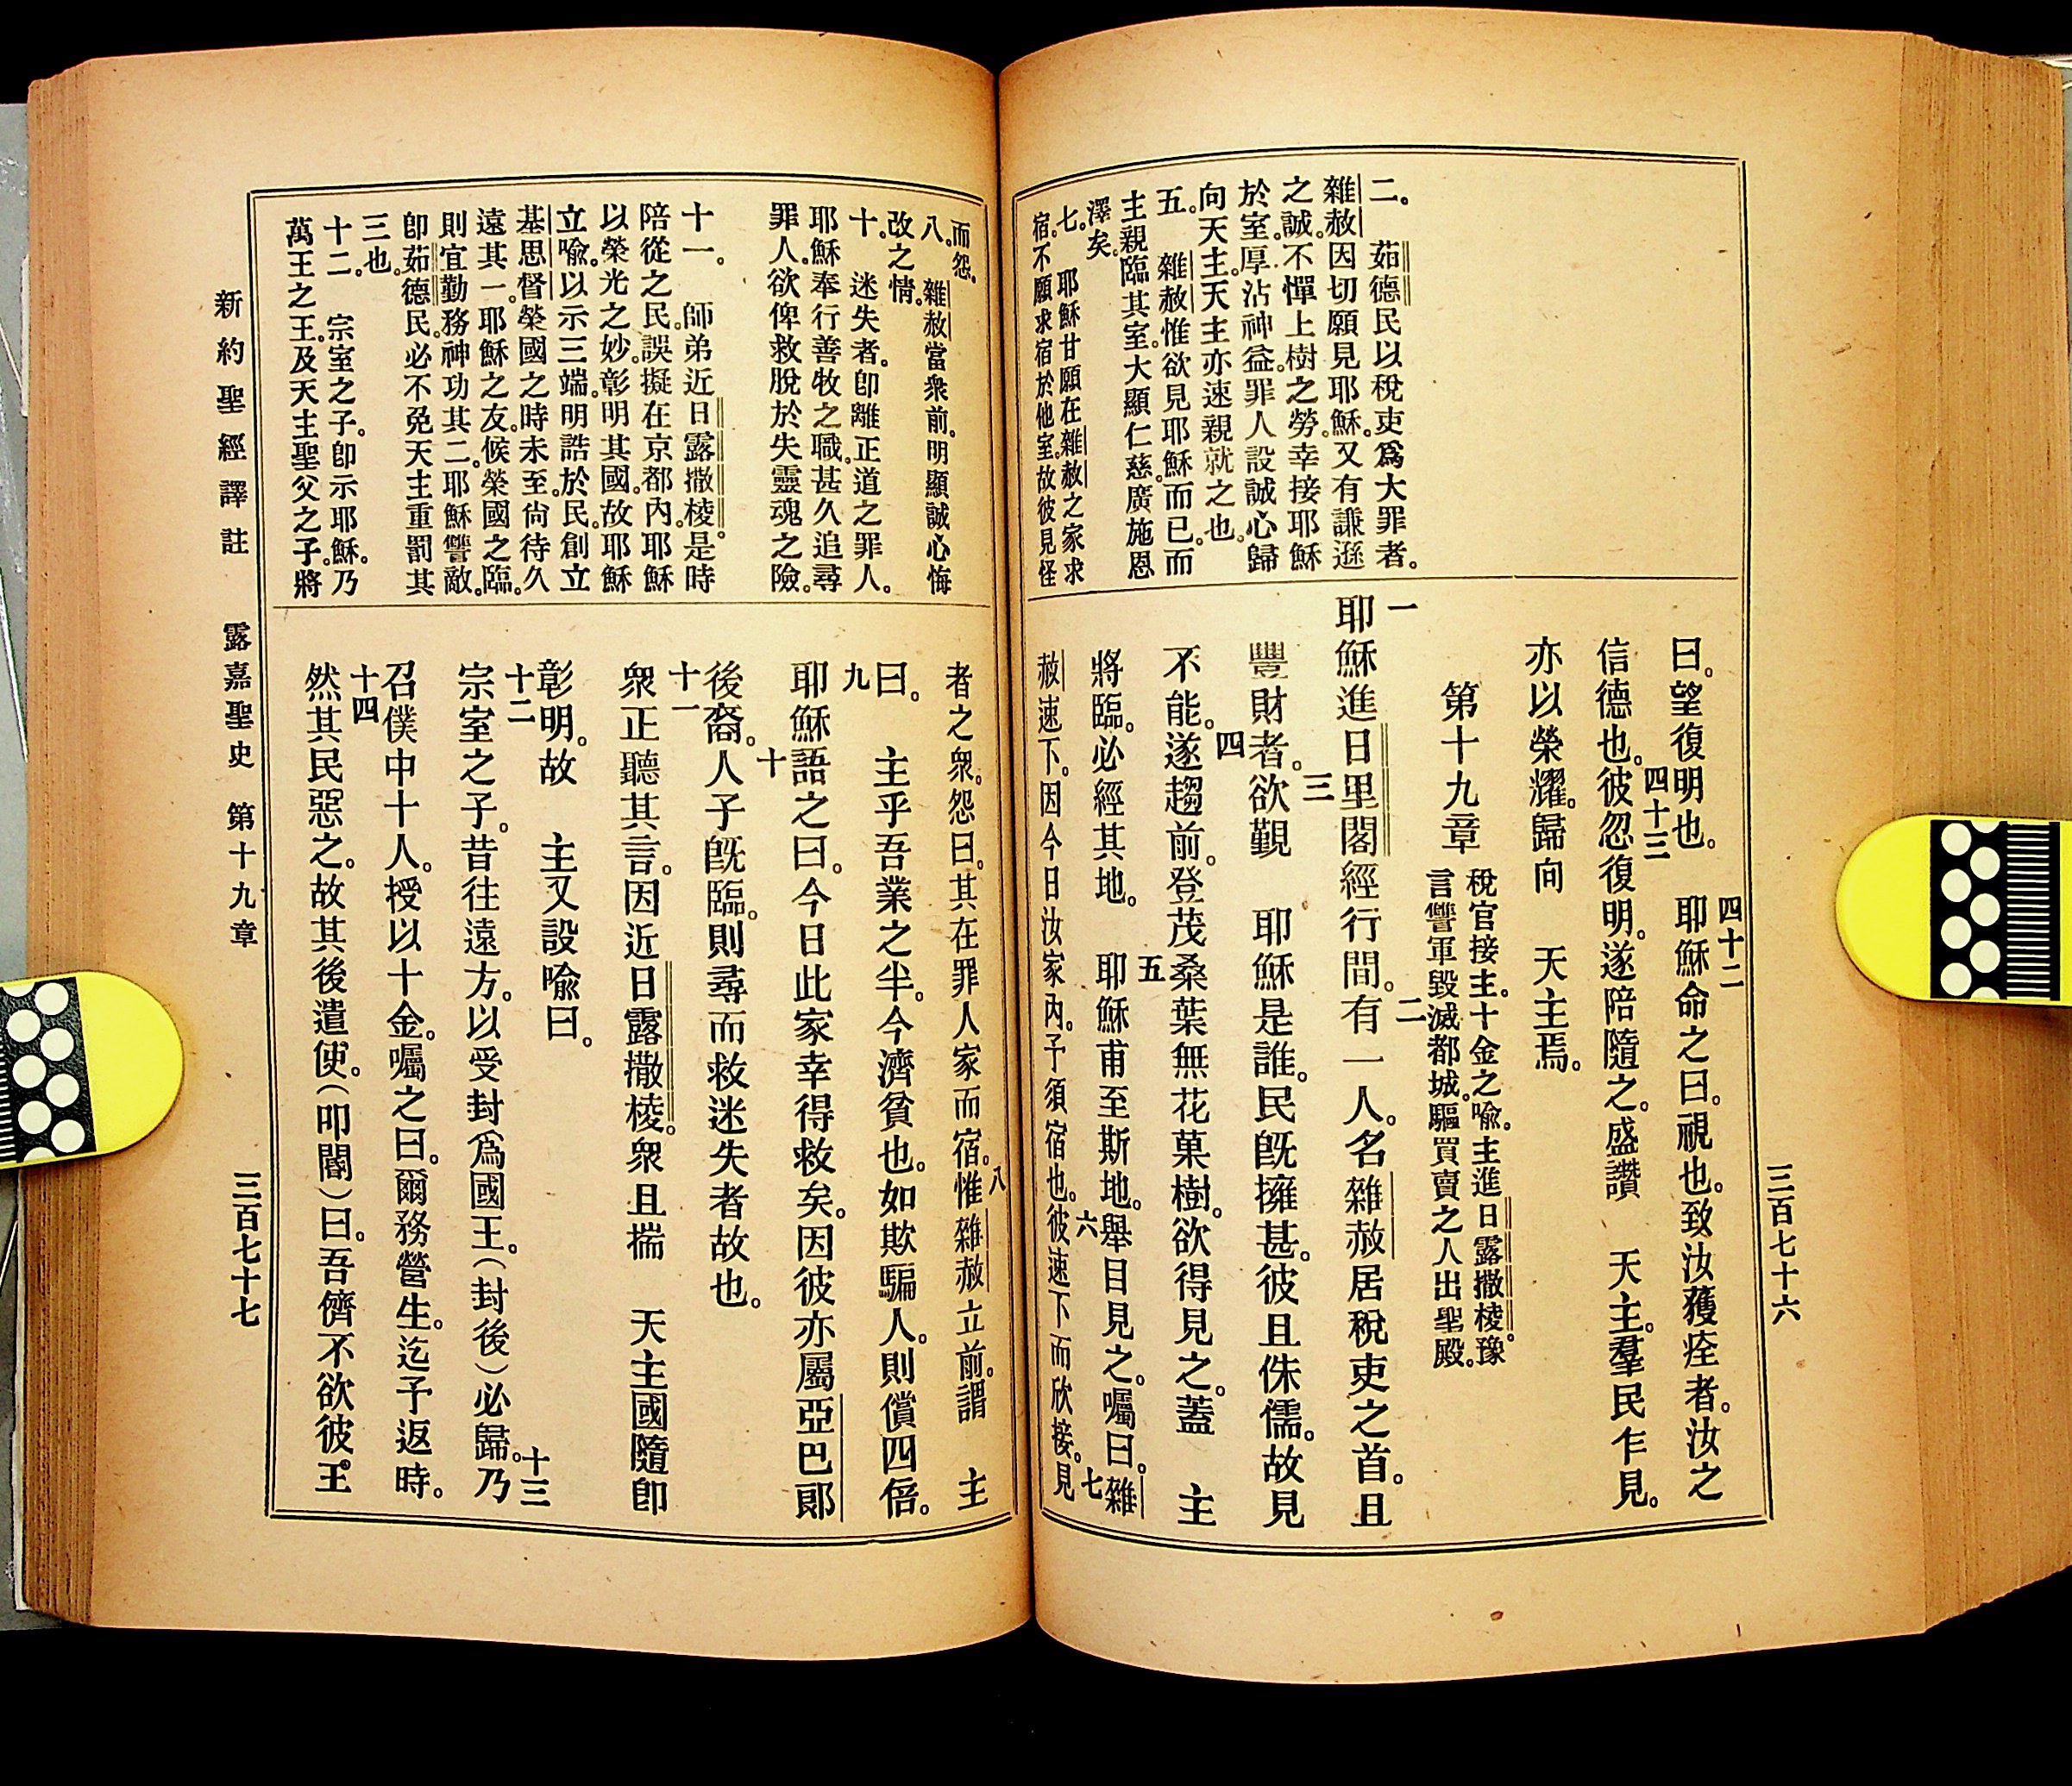 三百七十六
二。　茹德民以稅吏爲大罪者。
雜赦因切願見耶穌。又有謙遜
之誠。不憚上樹之勞。幸接耶穌
於室。厚沾神益。罪人設誠心歸
向天主。天主亦速親就之也。
五。　雜赦惟欲見耶穌而已。而
主親臨其室。大顯仁慈。廣施恩
澤矣。
七。　耶穌甘願在雜赦之家求
宿。不願求宿於他室。故彼見怪
曰。望復明也。　四十二耶穌命之曰。視也。致汝獲痊者。汝之
信德也。四十三彼忽復明。遂陪隨之。盛讚　天主。羣民乍見。
亦以榮耀。歸向　天主焉。
第十九章
稅官接主。十金之喩。主進日露撒棱。豫
言讐軍毀滅都城。驅買賣之人出聖殿。
一耶穌進日里閣經行間。二有一人。名雜赦居稅吏之首。且
豐財者。三欲覲　耶穌是誰。民旣擁甚。彼且侏儒。故見
不能。四遂趨前。登茂桑葉無花菓樹。欲得見之。蓋　主
將臨。必經其地。五　耶穌甫至斯地。舉目見之。囑曰。雜
赦速下。因今日汝家內。予須宿也。六彼速下而欣接。七見
而怨。
八。　雜赦當衆前。明顯誠心悔
改之情。
十。　迷失者。卽離正道之罪人。
耶穌奉行善牧之職。甚久追尋
罪人。欲俾救脫於失靈魂之險。
十一。　師弟近日露撒棱。是時
陪從之民。誤擬在京都內。耶穌
以榮光之妙。彰明其國。故耶穌
立喩。以示三端。明誥於民。創立
基思督榮國之時未至。尙待久
遠其一。耶穌之友。候榮國之臨。
則宜勤務神功其二。耶穌讐敵。
卽茹德民。必不免天主重罰其
三也。
十二。　宗室之子。卽示耶穌。乃
萬王之王。及天主聖父之子。將
者之衆。怨曰。其在罪人家而宿。八惟雜赦立前。謂　主
曰。　主乎吾業之半。今濟貧也。如欺騙人。則償四倍。
九耶穌語之曰。今日此家幸得救矣。因彼亦屬亞巴郞
後裔。十人子旣臨。則尋而救迷失者故也。
十一衆正聽其言。因近日露撒棱。衆且揣　天主國隨卽
彰明。故　主又設喩曰。
十二宗室之子。昔往遠方。以受封爲國王。(封後)必歸。十三乃
召僕中十人。授以十金。囑之曰。爾務營生。迄予返時。
十四然其民惡之。故其後遣使。(叩閽)曰。吾儕不欲彼王
新約聖經譯註　露嘉聖史　第十九章　三百七十七